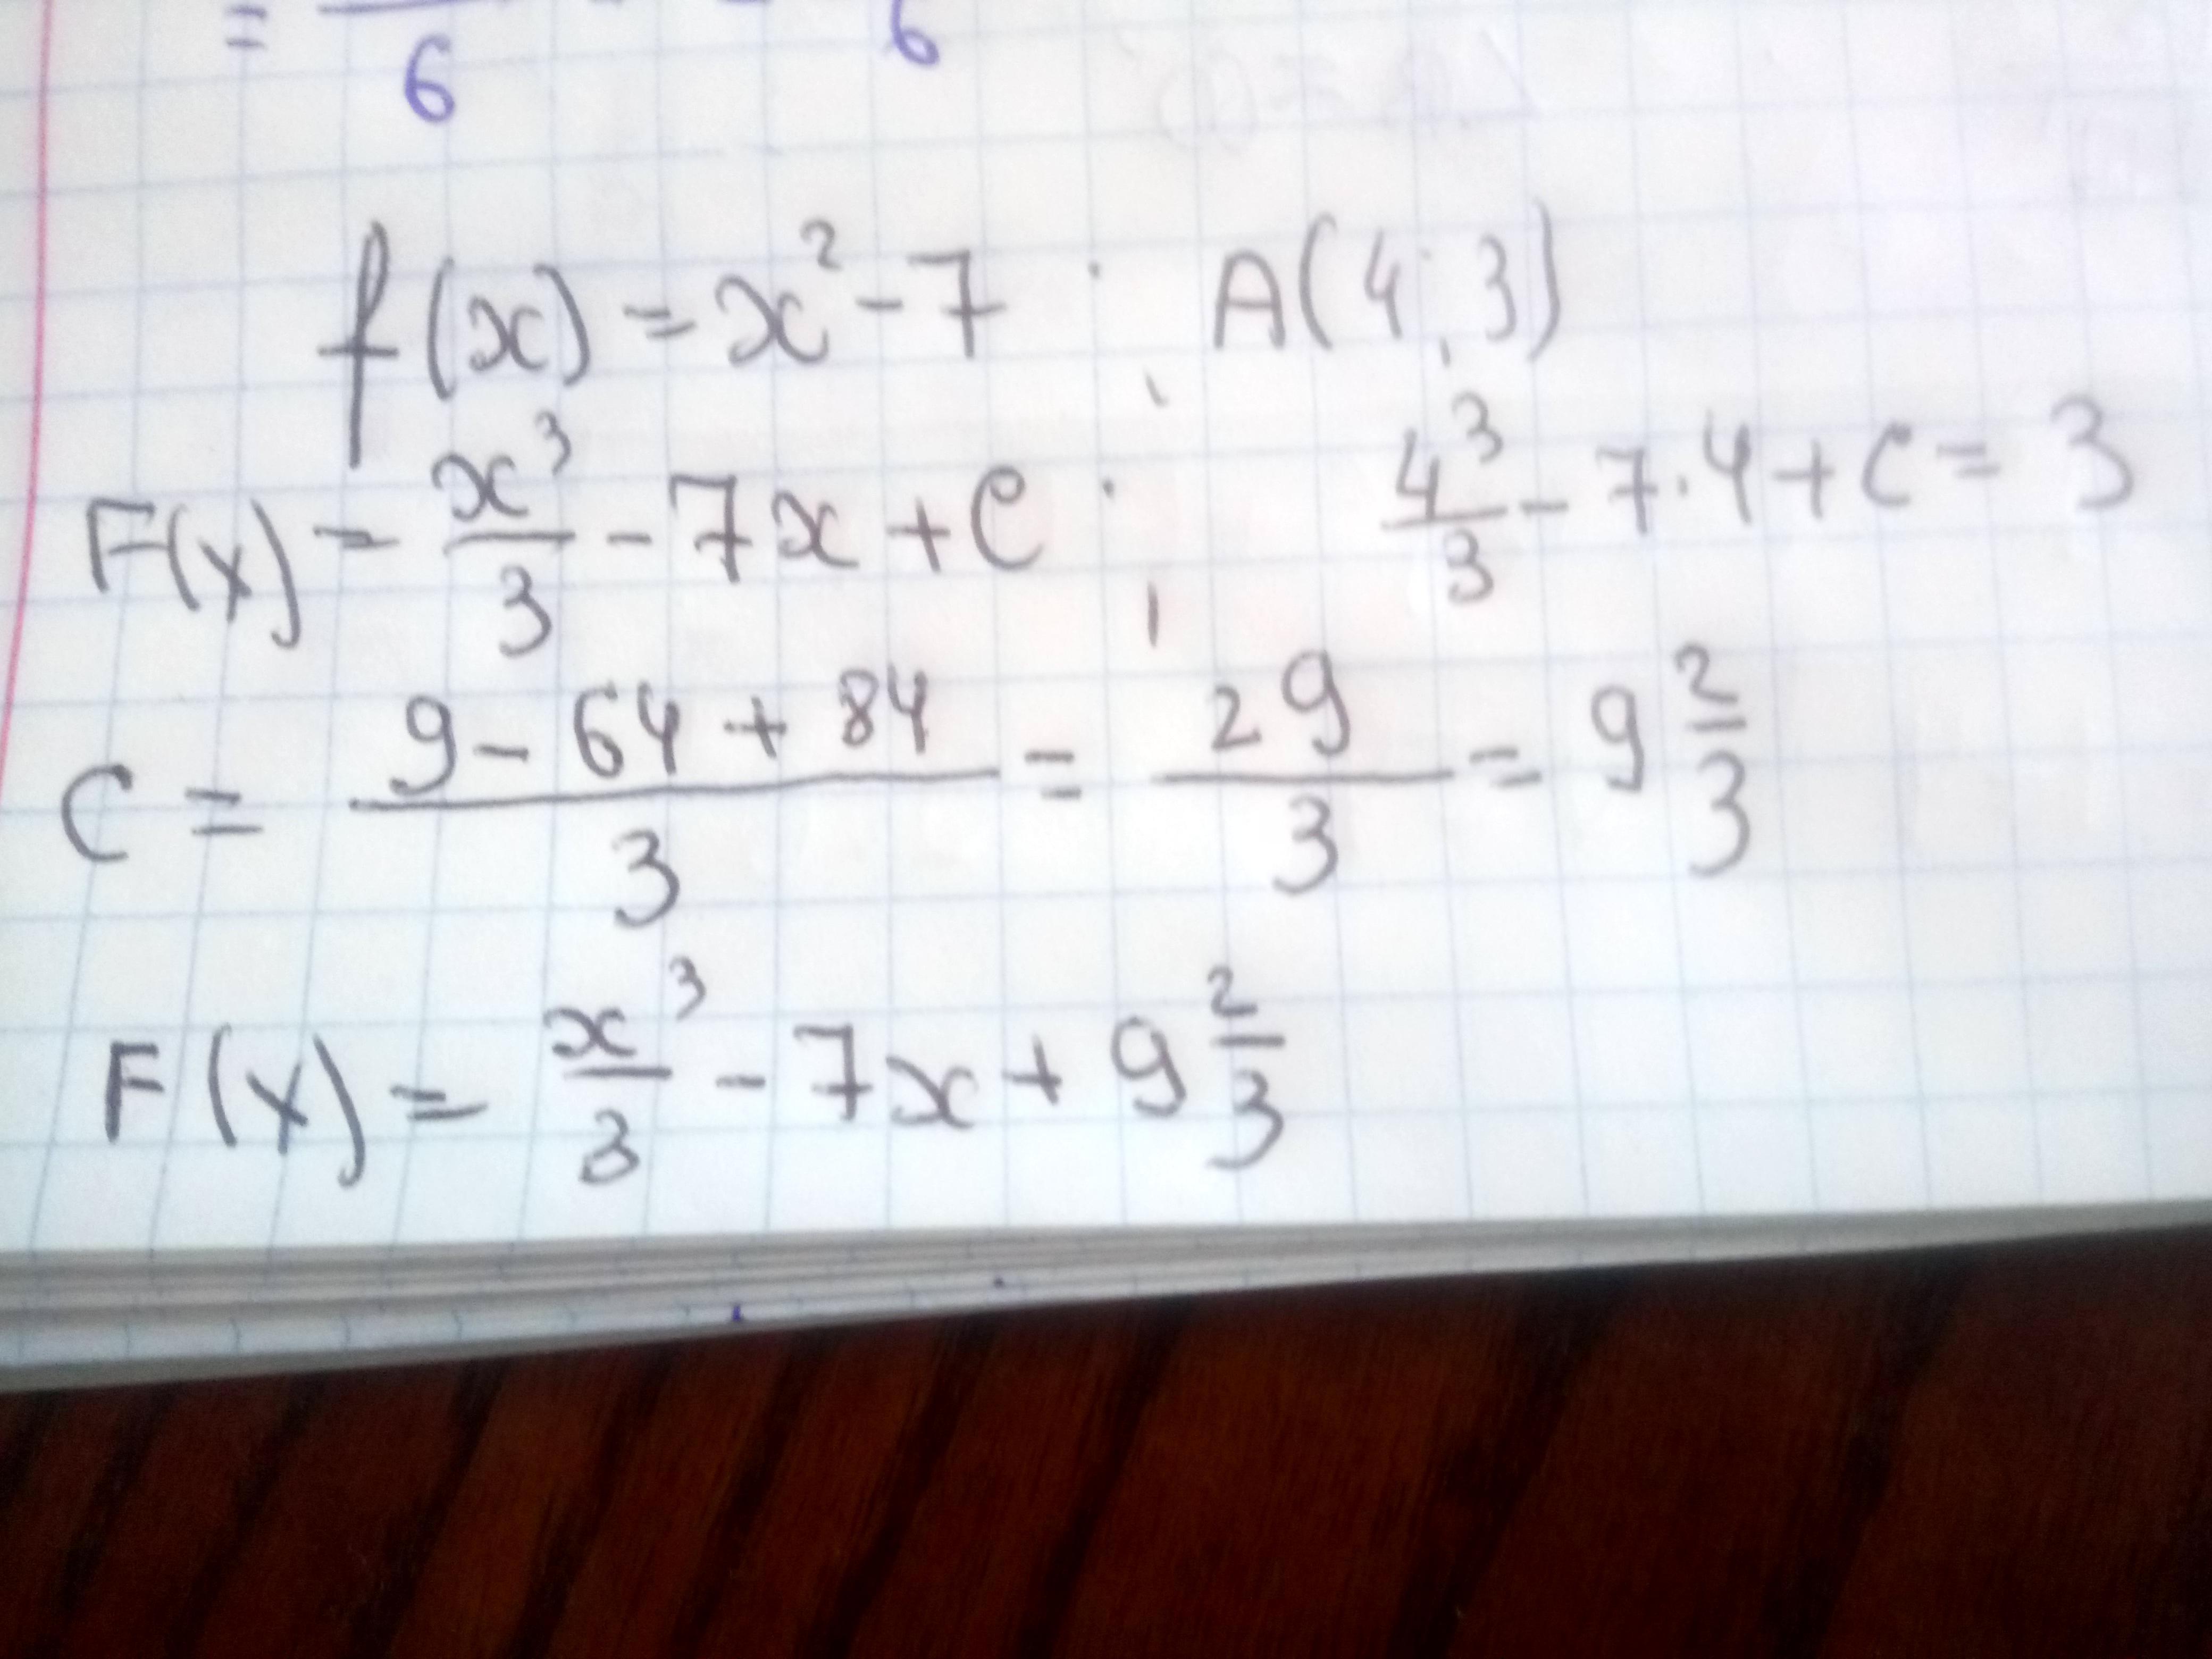 = 6 6
f(x) = x² - 7 ; A(4; 3)
F(x) = x³/3 - 7x + C ; 4³/3 - 7·4 + C = 3
C = (9 - 64 + 84)/3 = 29/3 = 9 2/3
F(x) = x³/3 - 7x + 9 2/3